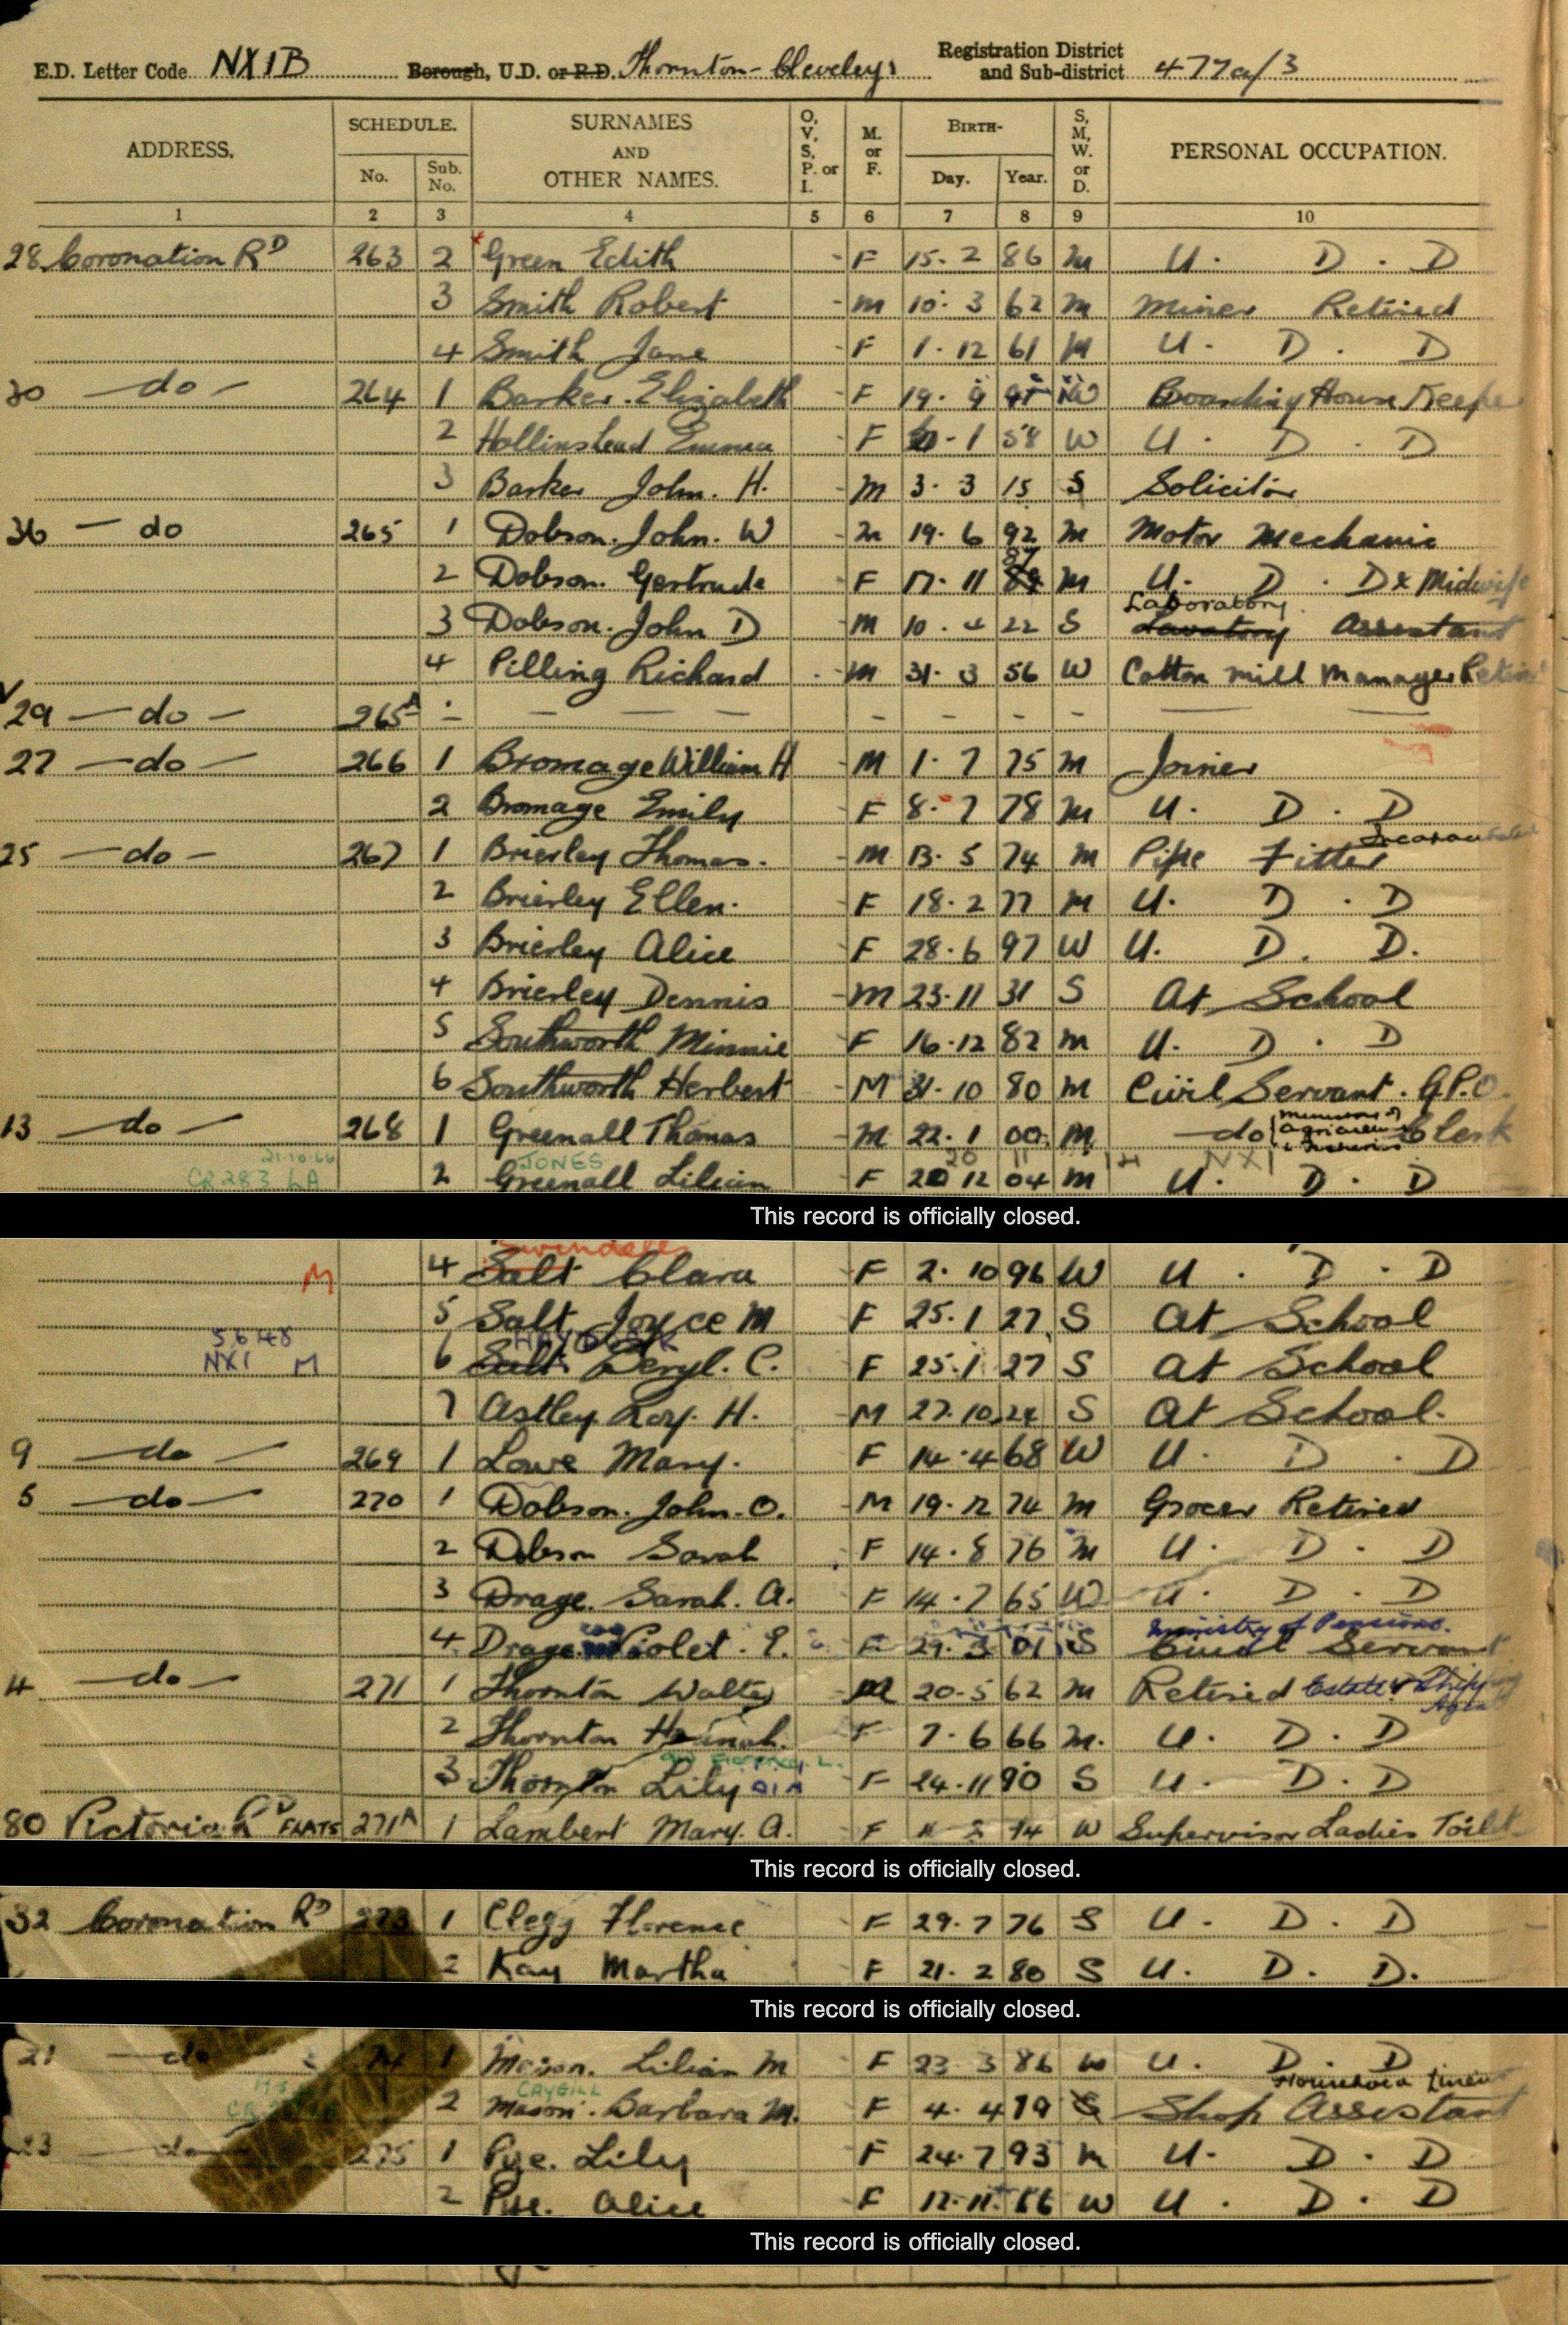 E.D. Letter Code NX1B Borough, U.D. or R.D. Thornton-Cleveleys Registration District and Sub-district 477a/3
ADDRESS. SCHEDULE. No. Sub. No. SURNAMES AND OTHER NAMES. O, V, S, P. or I. M. or F. BIRTH- Day. Year. S, M, W. or D. PERSONAL OCCUPATION.
1 2 3 4 5 6 7 8 9 10
28 Coronation RD 263 2 Green Edith - F 15. 2 86 M U. D. D
3 Smith Robert - M 10. 3 62 M Miner Retired
4 Smith Jane - F 1. 12 61 M U. D. D
30 - do - 264 1 Barker. Elizabeth F 19. 9 W Boarding House Keeper
2 Hollinshead Emma F 1 58 W U. D. D
3 Barker John. H. M 3. 3 15 S Solicitor
36 - do 265 1 Dobson. John. W M 19. 6 92 M Motor Mechanic
2 Dobson. Gertrude F 17. 11 87 M U. D. D & Midwife
Laboratory
3 Dobson. John D M 10. 4 22 S Lavatory Assistant
4 Pilling Richard - M 31. 3 56 W Cotton mill Manager Retired
29 - do - 265A - - - - - - - -
27 - do - 266 1 Bromage William H M 1. 7 75 M Joiner
2 Bromage Emily F 8. 7 78 M U. D. D
25 - do - 267 1 Brierley Thomas. M 13. 5 74 M Pipe Fitter
2 Brierley Ellen. F 18. 2 77 M U. D. D
3 Brierley Alice F 28. 6 97 W U. D. D.
4 Brierley Dennis M 23. 11 31 S At School
5 Southworth Minnie F 16. 12 82 M U. D. D
6 Southworth Herbert M 31. 10 80 M Civil Servant. G.P.O.
13 - do - 268 1 Greenall Thomas M 22. 1 00 M - do (Ministry of Agriculture & Fisheries Clerk
21.10.66 JONES 20 11 NX1
CR 283 LA 2 Greenall Lilian F 12 04 M U. D. D
This record is officially closed.
Swindells
M 4 Salt Clara F 2. 10 96 W U. D. D
5 Salt Joyce M F 25. 1 27 S At School
5648
NX1 M 6 Salt. Beryl. C. F 25. 1 27 S At School
7 Astley Roy. H. M 27. 10 24 S At School.
9 - do - 269 1 Lowe Mary. F 14. 4 68 W U. D. D
5 - do - 270 1 Dobson. John. O. M 19. 12 74 M Grocer Retired
2 Dobson Sarah F 14. 8 76 M U. D. D
3 Drage. Sarah. A. F 14. 7 65 W U. D. D
Ministry of Pensions.
4 Drage Violet. E. F 29. 3 01 S Civil Servant
4 - do - 271 1 Thornton Walter M 20. 5 62 M Retired Estate & Shipping Agent
2 Thornton Hannah. F 7. 6 66 M. U. D. D
3 Thornton Lily F 24. 11 90 S U. D. D
80 Victoria RD FLATS 271A 1 Lambert Mary. A. F 11 2 74 W Supervisor Ladies Toilet
This record is officially closed.
32 Coronation RD 273 1 Clegg Florence F 29. 7 76 S U. D. D
2 Kay Martha F 21. 2 80 S U. D. D.
This record is officially closed.
21 - do 1 Mason. Lilian M F 23 3 86 W U. D. D
CAYGILL Household Linen
2 Mason. Barbara M. F 4. 4 19 S Shop Assistant
23 - do - 275 1 Pye. Lily F 24. 7 93 M U. D. D
2 Pye. Alice F 12. 11. 66 W U. D. D
This record is officially closed.